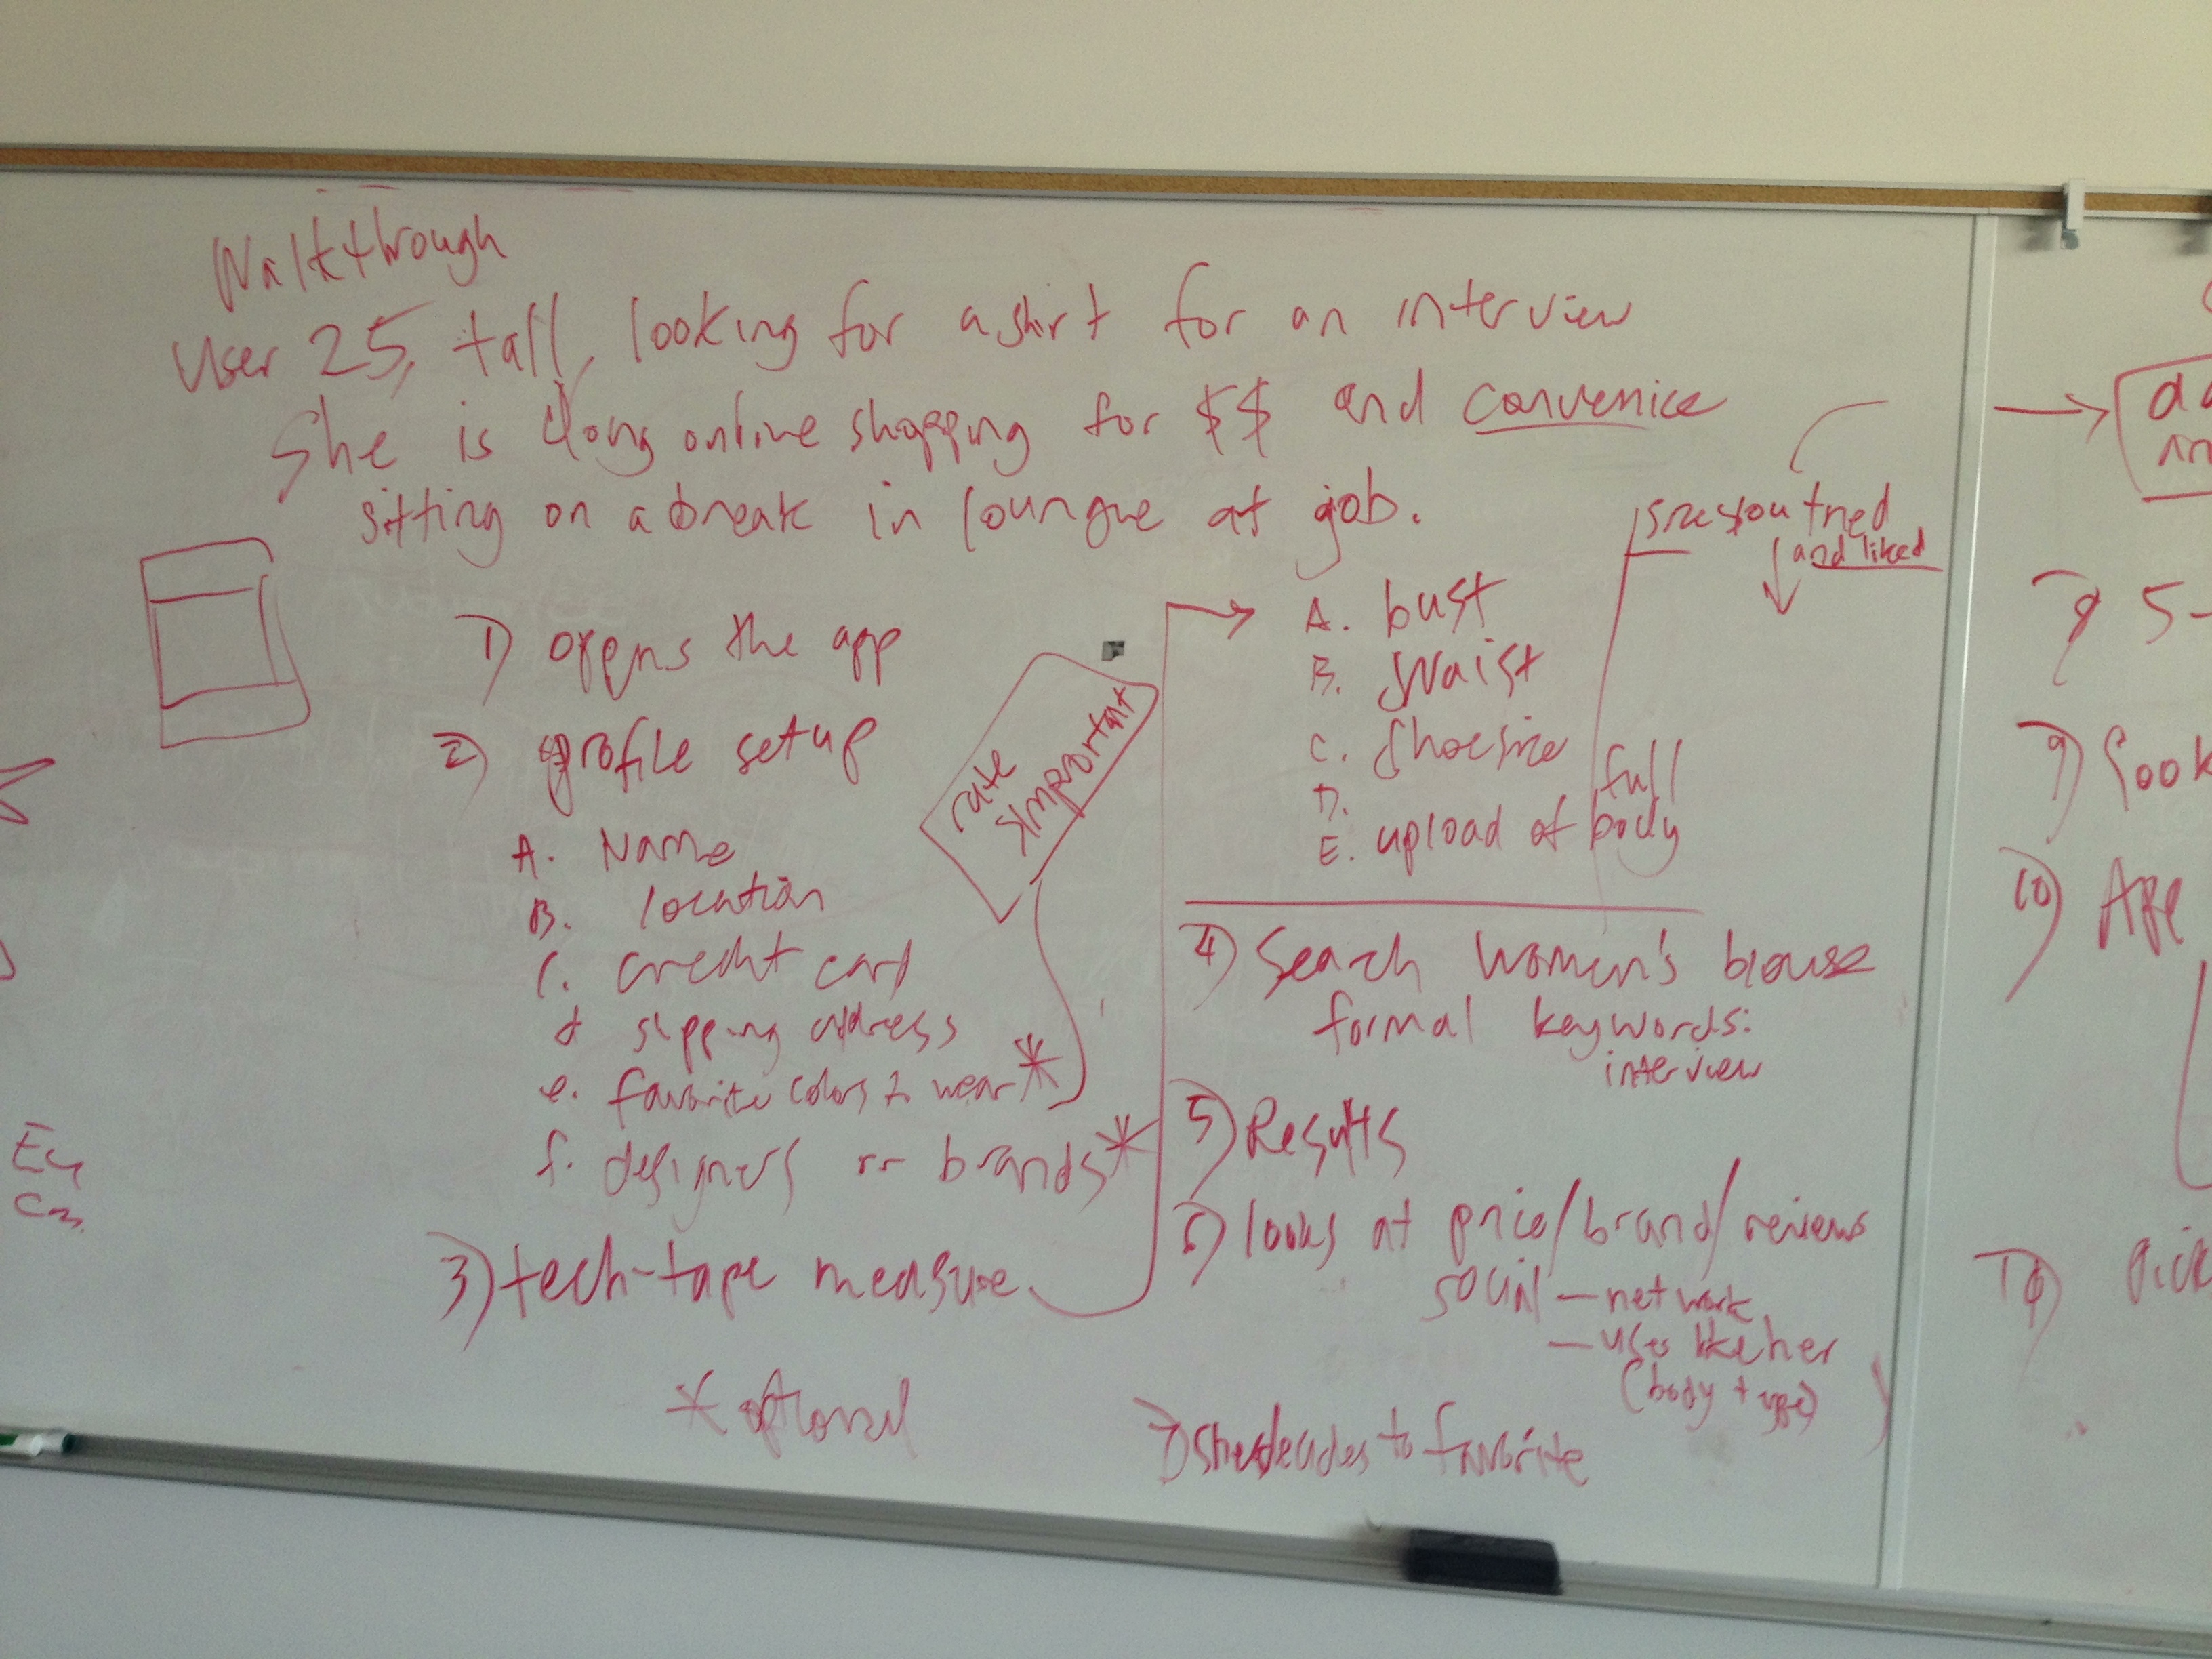 Walkthrough
User 25, tall, looking for a shirt for an interview
She is doing online shopping for $$ and convenice
sitting on a break in loungue at job.
1) opens the app
2) profile setup
A. Name
B. location
C. credit card
d shipping address
e. favorite colors to wear*
f. designers or brands*
3) tech-tape measure
* optional
rate
important
you tried
and liked
A. bust
B. Waist
C. Shoesize
D.
E. upload of full body
4) Search women's blouse
formal keywords:
interview
5) Results
6) looks at price/brand/reviews
social - network
- users like her
(body + type)
7) She decides to favorite
9)
10) App